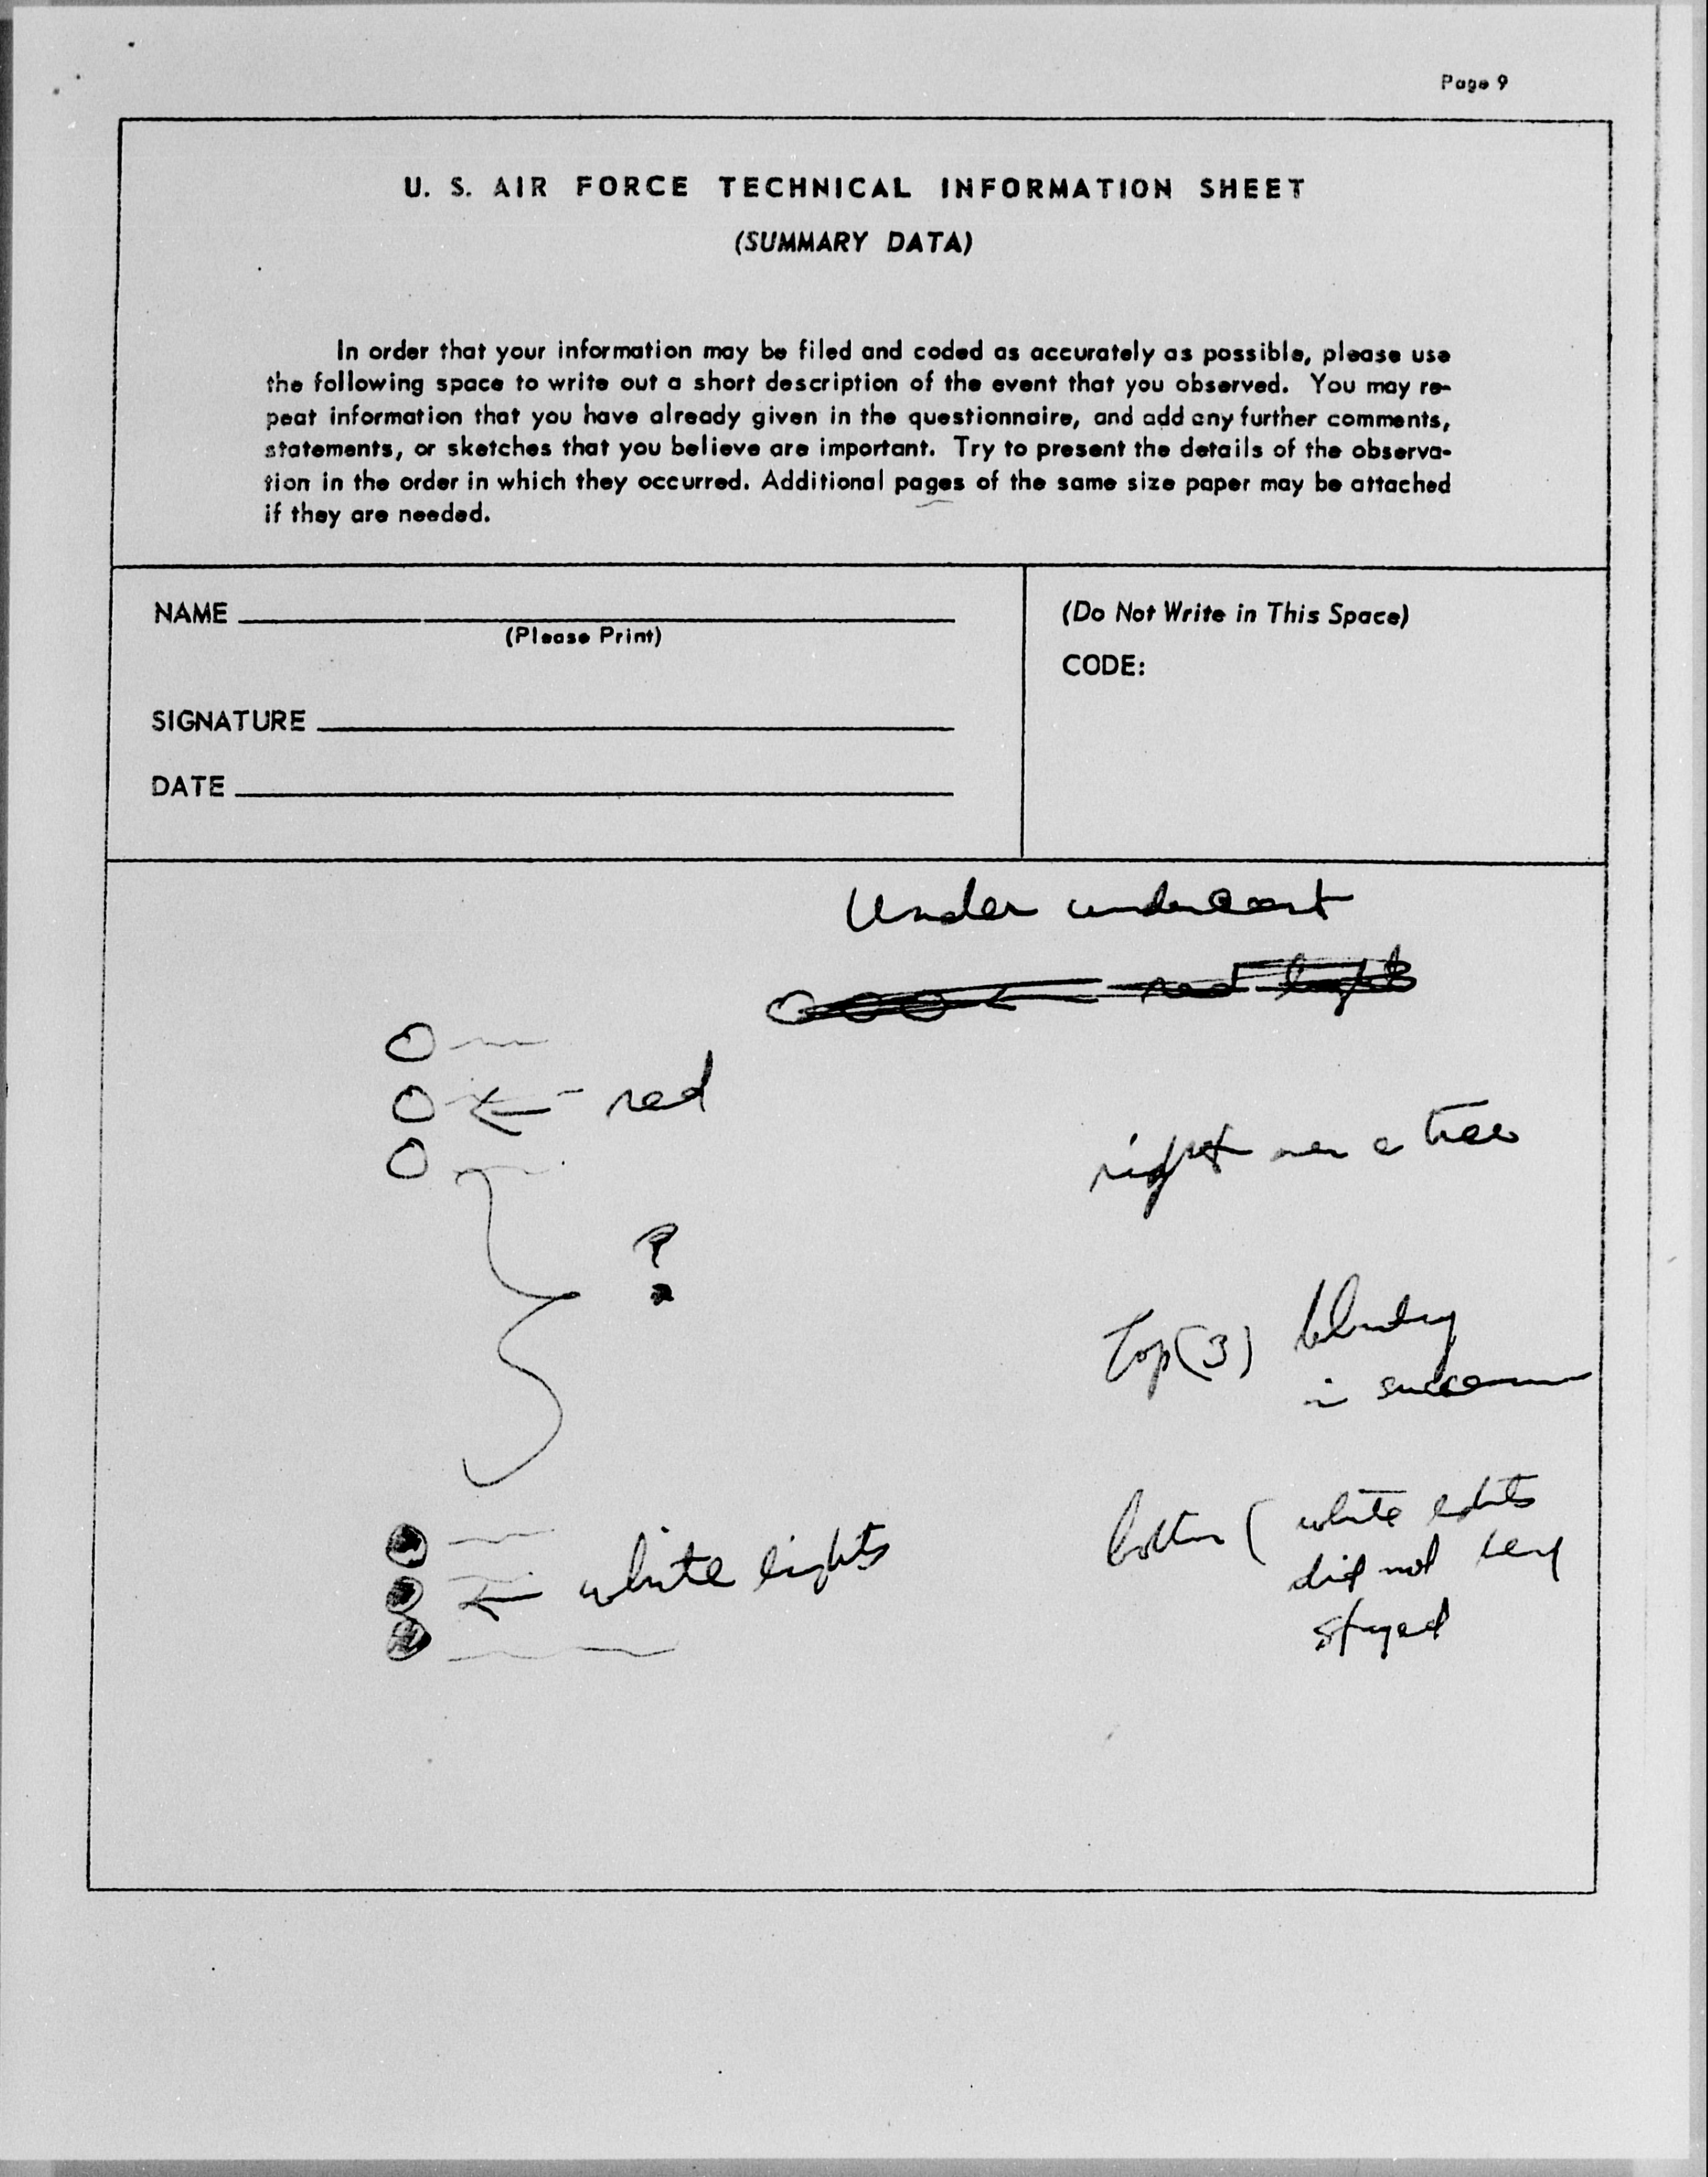 Page 9
U. S. AIR FORCE TECHNICAL INFORMATION SHEET
(SUMMARY DATA)
In order that your information may be filed and coded as accurately as possible, please use
the following space to write out a short description of the event that you observed. You may re-
peat information that you have already given in the questionnaire, and add any further comments,
statements, or sketches that you believe are important. Try to present the details of the observa-
tion in the order in which they occurred. Additional pages of the same size paper may be attached
if they are needed.
NAME
(Please Print)
SIGNATURE
DATE
(Do Not Write in This Space)
CODE:
Under
red lights
red
right over a tree
?
Top (3)
in
white lights
bottom ( white
did not
stayed